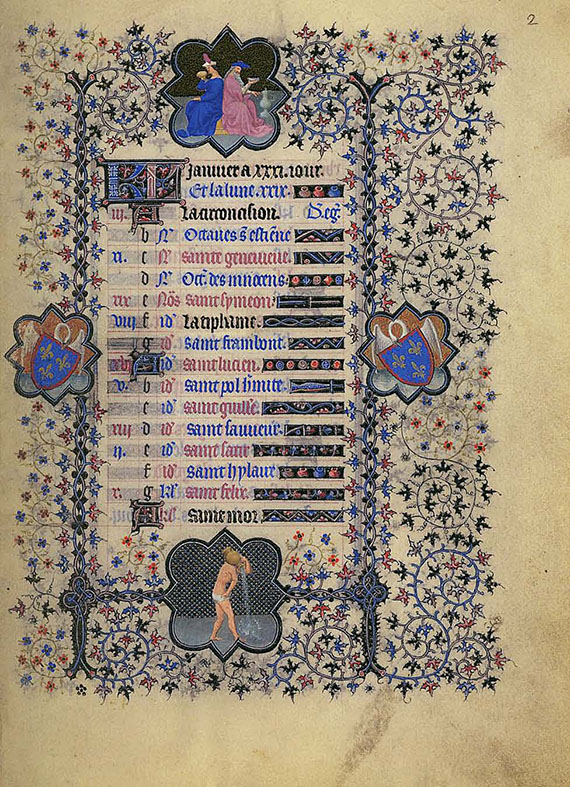 2
KL Janvier a XXXI. iour.
Et la lune. xxix.
iii. A La circoncision. D. eg.
b N̄ Octaues s̄ estiēne
xi. c N̄ sainte geneuieue.
d N̄ Oct̄. des innocens.
xix e Nōs saint symeon.
viii f id̄ La tiphane.
g id̄ saint frambout.
A id̄ saint lucien.
v. b id̄ saint pol h̄mite.
c id̄ saint guill̄e.
xiii d id̄ saint sauueur.
ii. e id̄ saint satir
f id̄ saint hylaire
x. g kl̄. saint felix.
A saint mor.